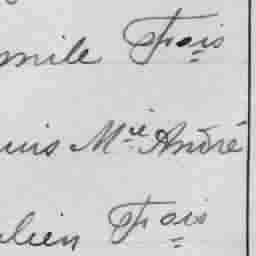 mile Fois
uis Mie André
lien Fois